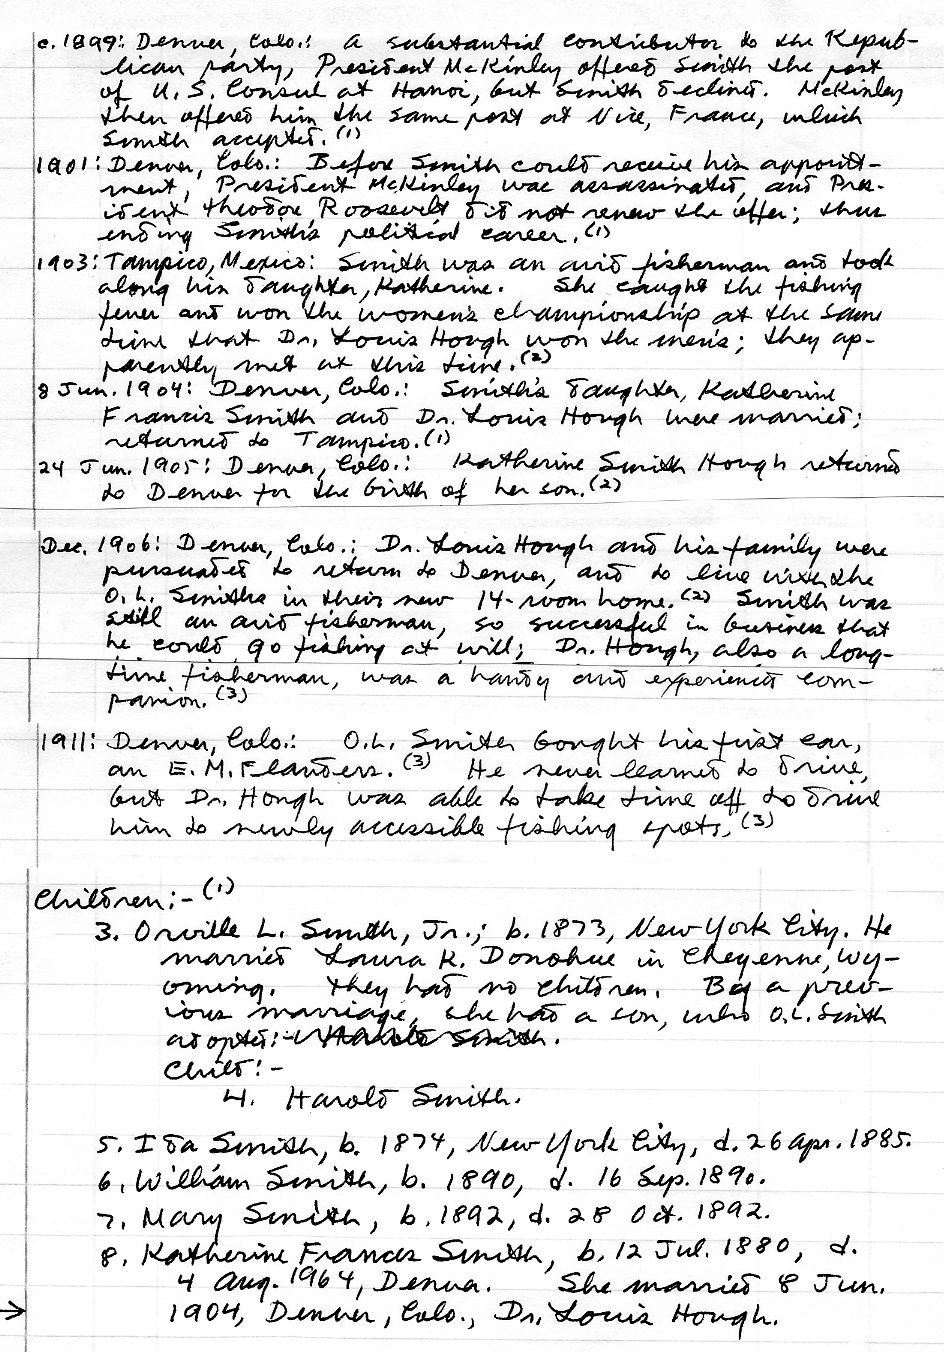 c. 1899: Denver, Colo.: A substantial contributor to the Repub-
lican party, President McKinley offered Smith the post
of U.S. Consul at Hanoi, but Smith declined. McKinley
then offered him the same post at Nice, France, which
Smith accepted.(1)
1901: Denver, Colo.: Before Smith could receive his appoint-
ment, President McKinley was assassinated, and Pres-
ident Theodore Roosevelt did not renew the offer; thus
ending Smith's political career.(1)
1903: Tampico, Mexico: Smith was an avid fisherman and took
along his daughter, Katherine. She caught the fishing
fever and won the women's championship at the same
time that Dr. Louis Hough won the men's; they ap-
parently met at this time.(2)
8 Jun. 1904: Denver, Colo.: Smith's daughter, Katherine
Francis Smith and Dr. Louis Hough were married;
returned to Tampico.(1)
24 Jun. 1905: Denver, Colo.: Katherine Smith Hough returned
to Denver for the birth of her son.(2)
Dec. 1906: Denver, Colo.: Dr. Louis Hough and his family were
pursuaded to return to Denver, and to live with the
O.L. Smiths in their new 14-room home.(2) Smith was
still an avid fisherman, so successful in business that
he could go fishing at will; Dr. Hough, also a long-
time fisherman, was a handy and experienced com-
panion.(3)
1911: Denver, Colo.: O.L. Smith bought his first car,
an E.M.Flanders.(3) He never learned to drive,
but Dr. Hough was able to take time off to drive
him to newly accessible fishing spots.(3)
Children:-(1)
3. Orville L. Smith, Jr.; b. 1873, New York City. He
married Laura K. Donohue in Cheyenne, Wy-
oming. They had no children. By a prev-
ious marriage, she had a son, who O.L. Smith
adopted:- Harold Smith.
Child:-
4. Harold Smith.
5. Ida Smith, b. 1874, New York City, d. 26 Apr. 1885.
6. William Smith, b. 1890, d. 16 Sep. 1890.
7. Mary Smith, b. 1892, d. 28 Oct. 1892.
8. Katherine Frances Smith, b. 12 Jul. 1880, d.
4 Aug. 1964, Denver. She married 8 Jun.
→ 1904, Denver, Colo., Dr. Louis Hough.